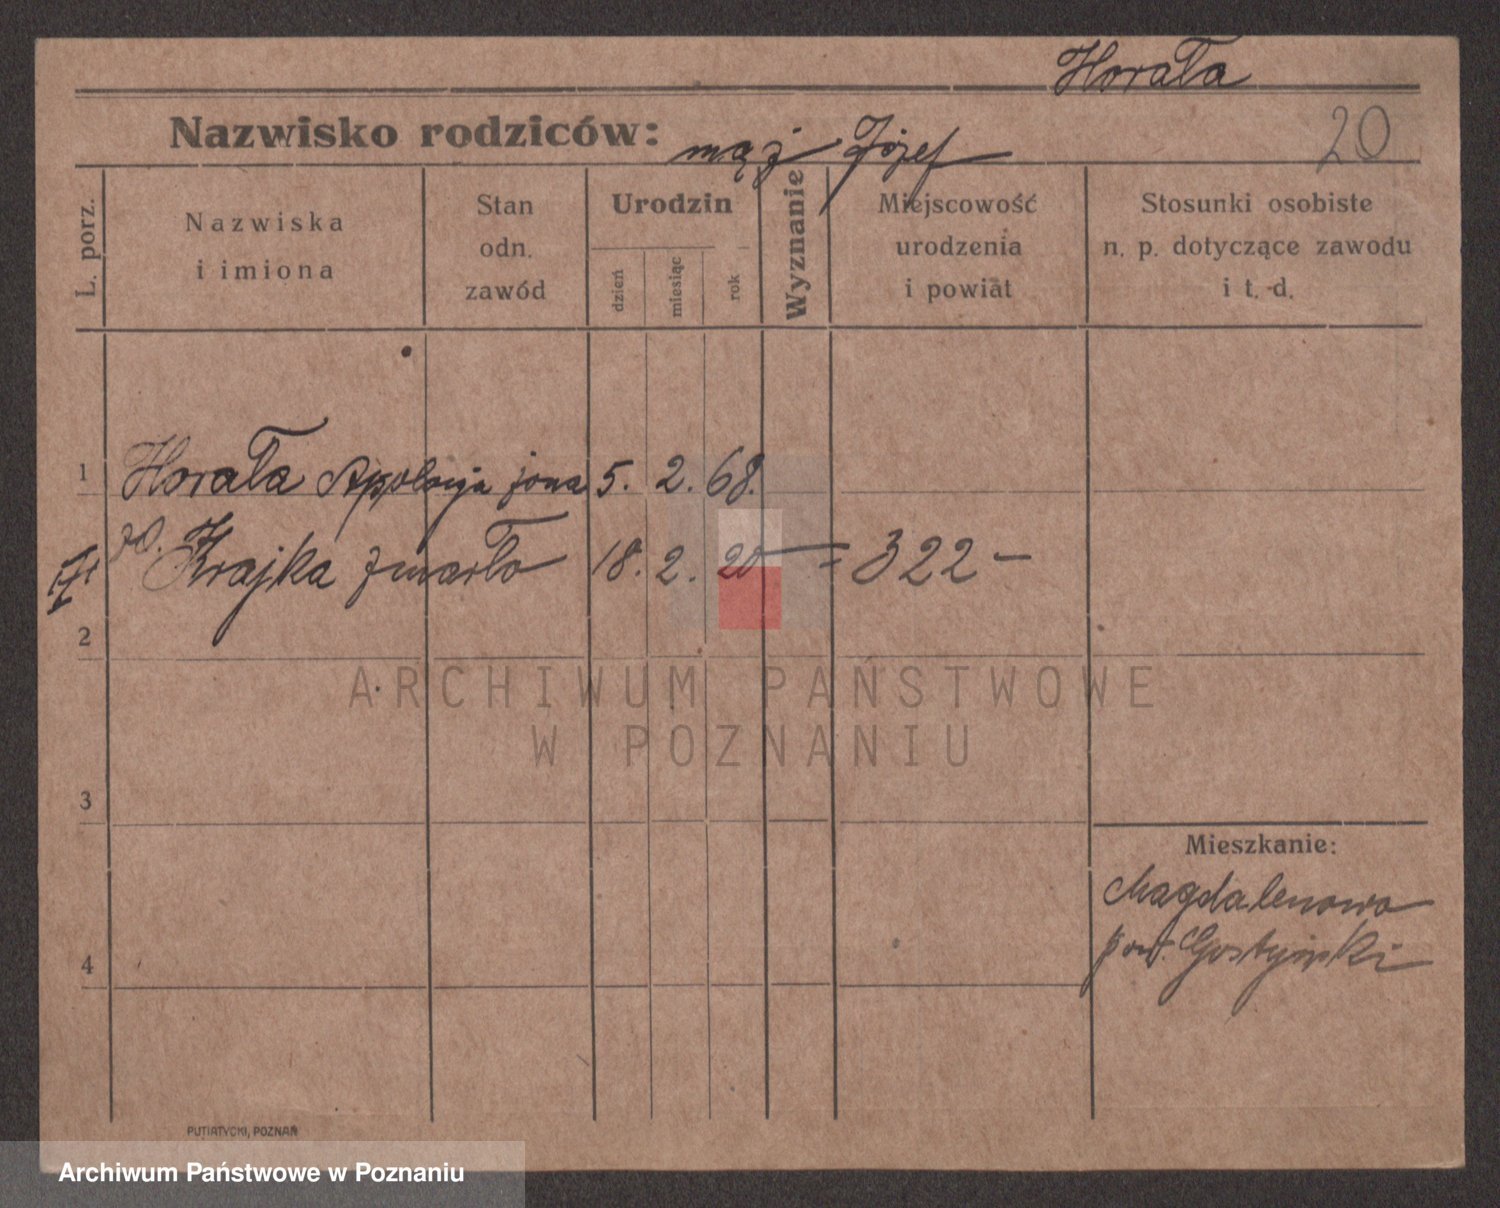 Horała
20
Nazwisko rodziców: mąż Józef
L. porz.
Nazwiska
i imiona
Stan
odn.
zawód
Urodzin
dzień
miesiąc
rok
Wyznanie
Miejscowość
urodzenia
i powiat
Stosunki osobiste
n. p. dotyczące zawodu
i t. d.
1 Horała Apolonja żona 5. 2. 68.
zd. Krajka zmarła 18. 2. 20 = 322 –
2
3
4
Mieszkanie:
Magdalenowo
pow. Gostyński
ARCHIWUM PAŃSTWOWE
W POZNANIU
PUTIATYCKI, POZNAŃ
Archiwum Państwowe w Poznaniu